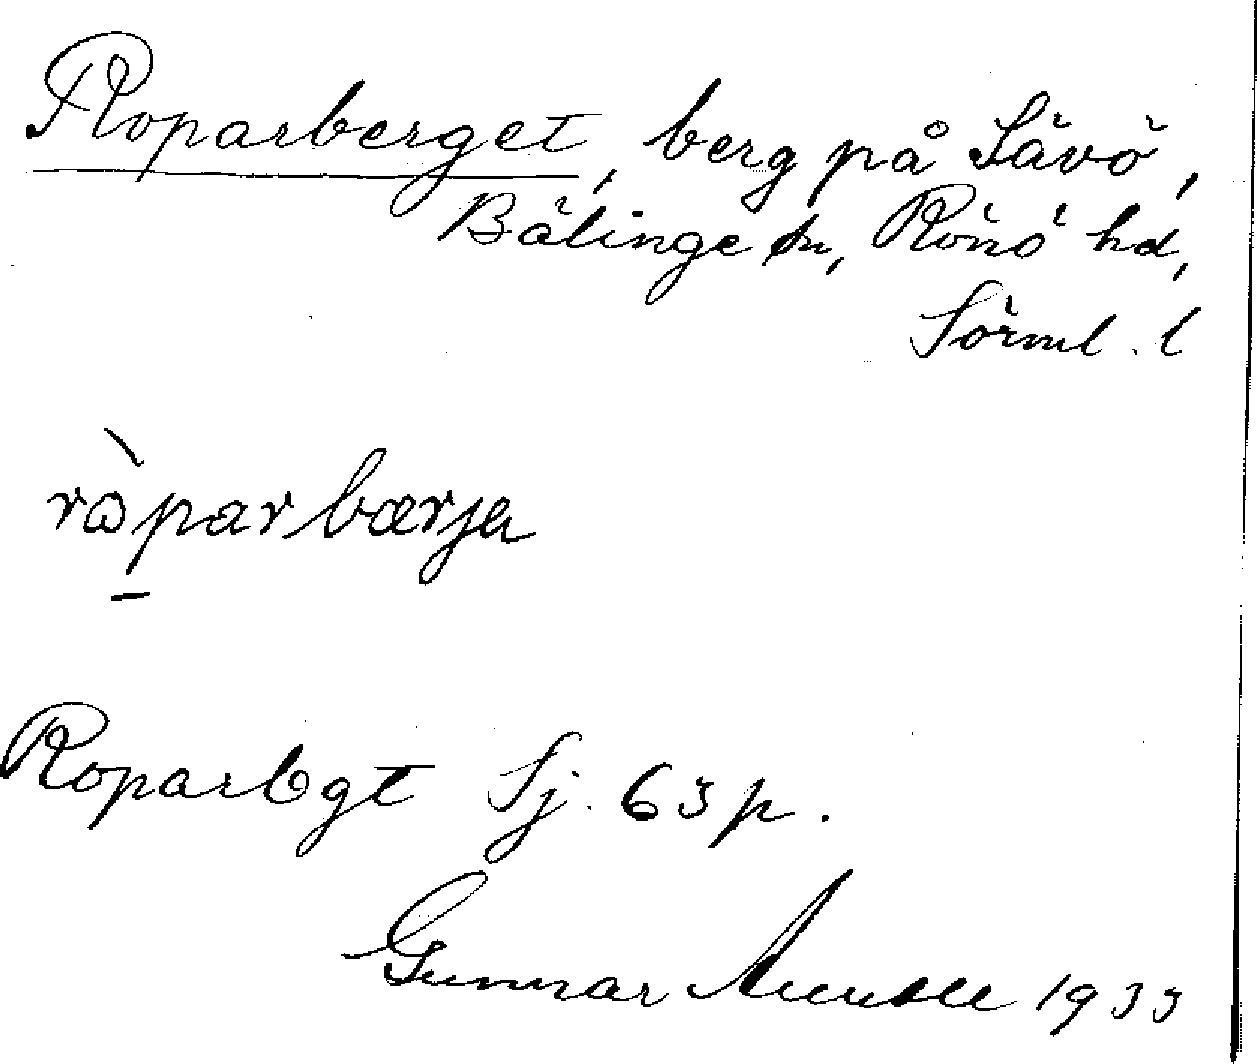 Roparberget, berg på Sävö,
Bälinge sn, Rönö hd,
Sörml. l
ròparbærja
Roparbgt Sj. 63 p.
Gunnar 1933